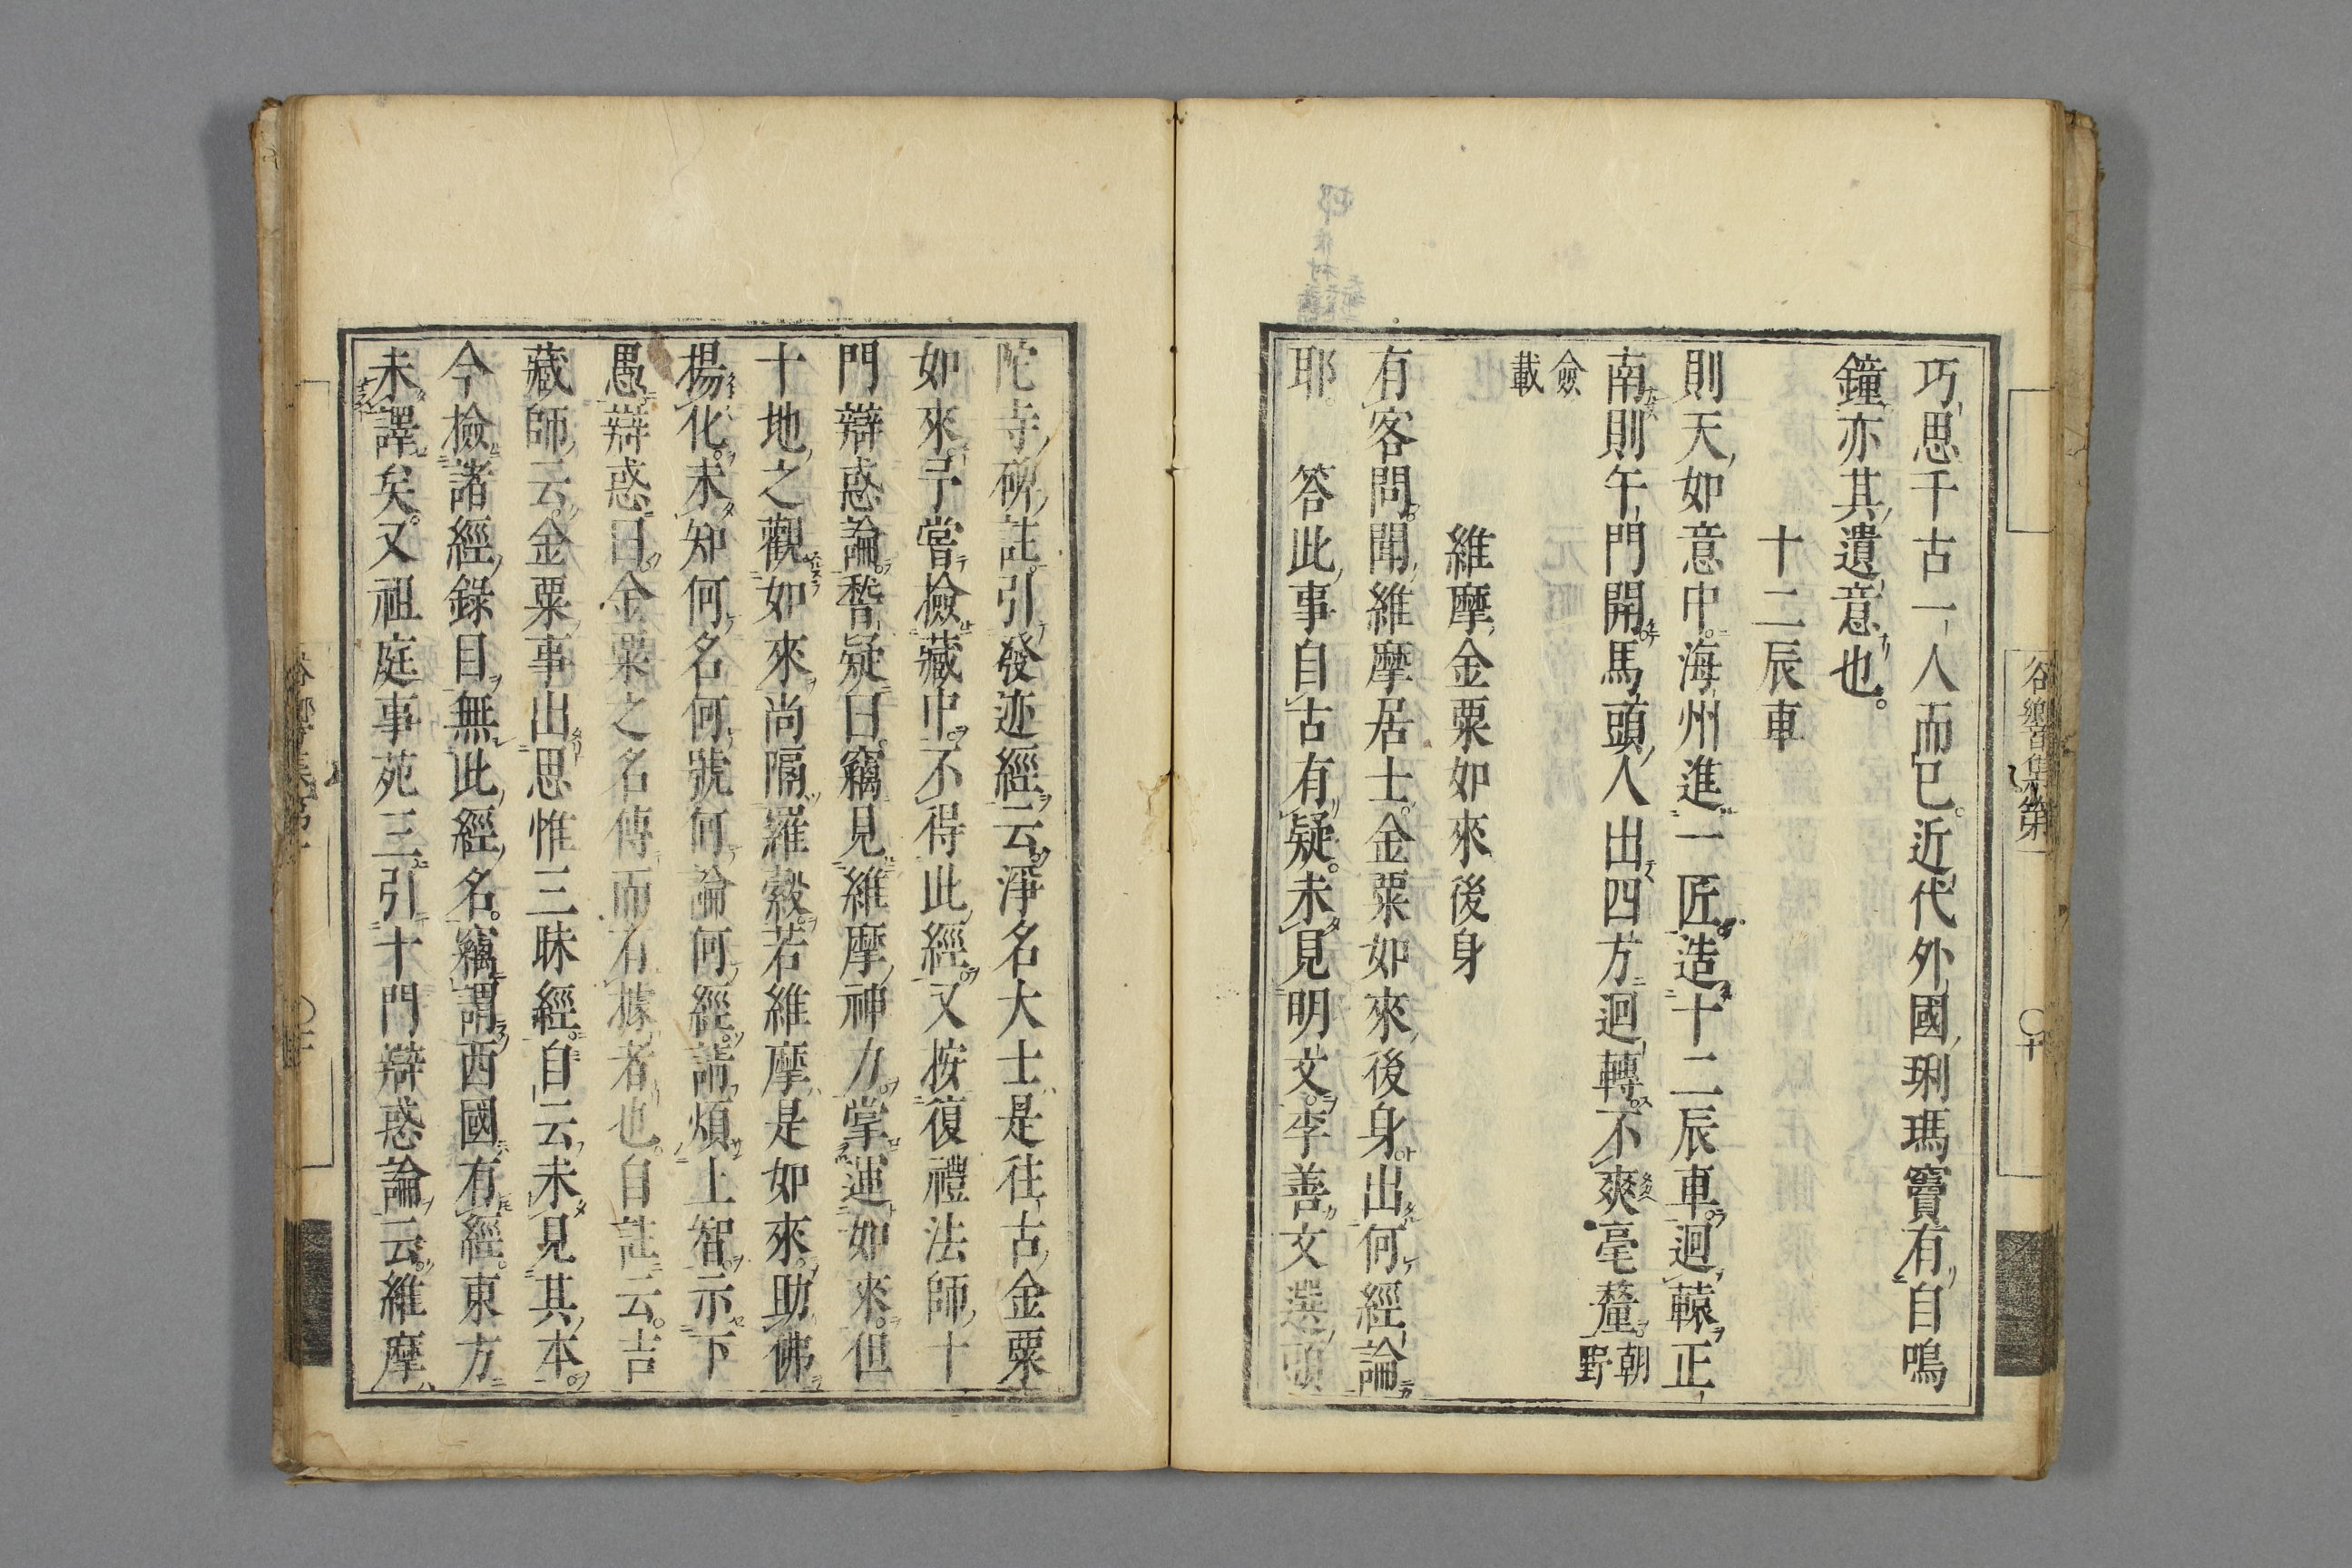 巧思千古一人而已。近代外國琍瑪竇有自鳴
鐘亦其遺意也。
十二辰車
則天如意中。海州進一匠。造十二辰車。迴轅正
南則午門開。馬頭人出。四方迴轉。不爽毫釐。朝野
僉載
維摩金粟如來後身
有客問。聞維摩居士。金粟如來後身。出何經論
耶。 答此事自古有疑。未見明文。李善文選頭
陀寺碑註。引發迹經云。淨名大士是往古金粟
如來。予嘗撿藏中。不得此經。又按復禮法師十
門辯惑論。稽疑曰。竊見維摩神力。掌運如來。但
十地之觀如來。尚隔羅縠。若維摩是如來。助佛
揚化。未知何名何號何論何經。請煩上智。示下
愚。辯惑曰。金粟之名傳而有據者也。自註云。吉
藏師云。金粟事出思惟三昧經。自云未見其本。
今撿諸經錄目。無此經名。竊謂西國有經。東方
未譯矣。又祖庭事苑三引十門辯惑論云。維摩
谷響集第一 〇十